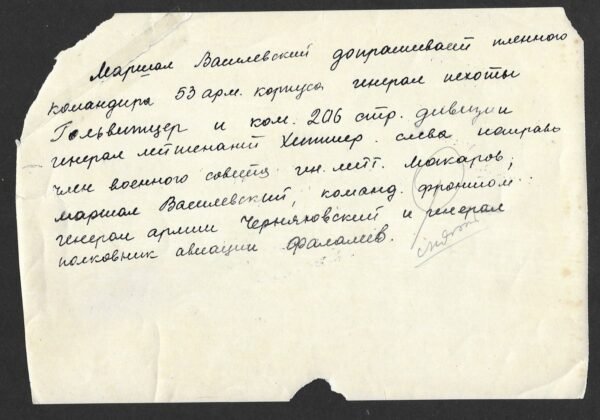 Маршал Василевский допрашивает пленного
командира 53 арм. корпуса генерал пехоты
Гольвитцер и ком. 206 стр. дивизии
генерал лейтенант Хиттер. слева направо
член военного совета ген. лейт. Макаров,
маршал Василевский, команд. фронтом
генерал армии Черняховский и генерал
полковник авиации Фалалеев.